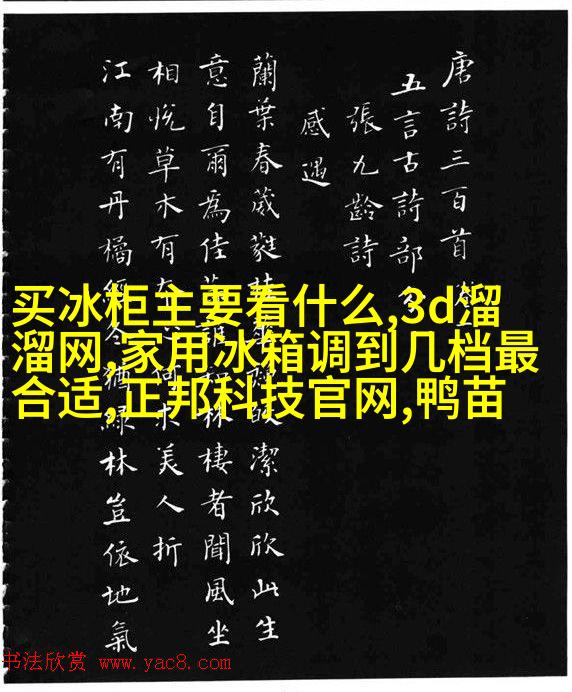 唐詩三百首
五言古詩部
張九齡詩
感遇
蘭葉春葳蕤桂華秋皎潔欣欣此生
意自爾為佳節誰知林棲者聞風坐
相悅草木有本心何求美人折
江南有丹橘經冬猶綠林豈依地氣
买冰柜主要看什么,3d溜
溜网,家用冰箱调到几档最
合适,正邦科技官网,鸭苗
书法欣赏 www.yac8.com